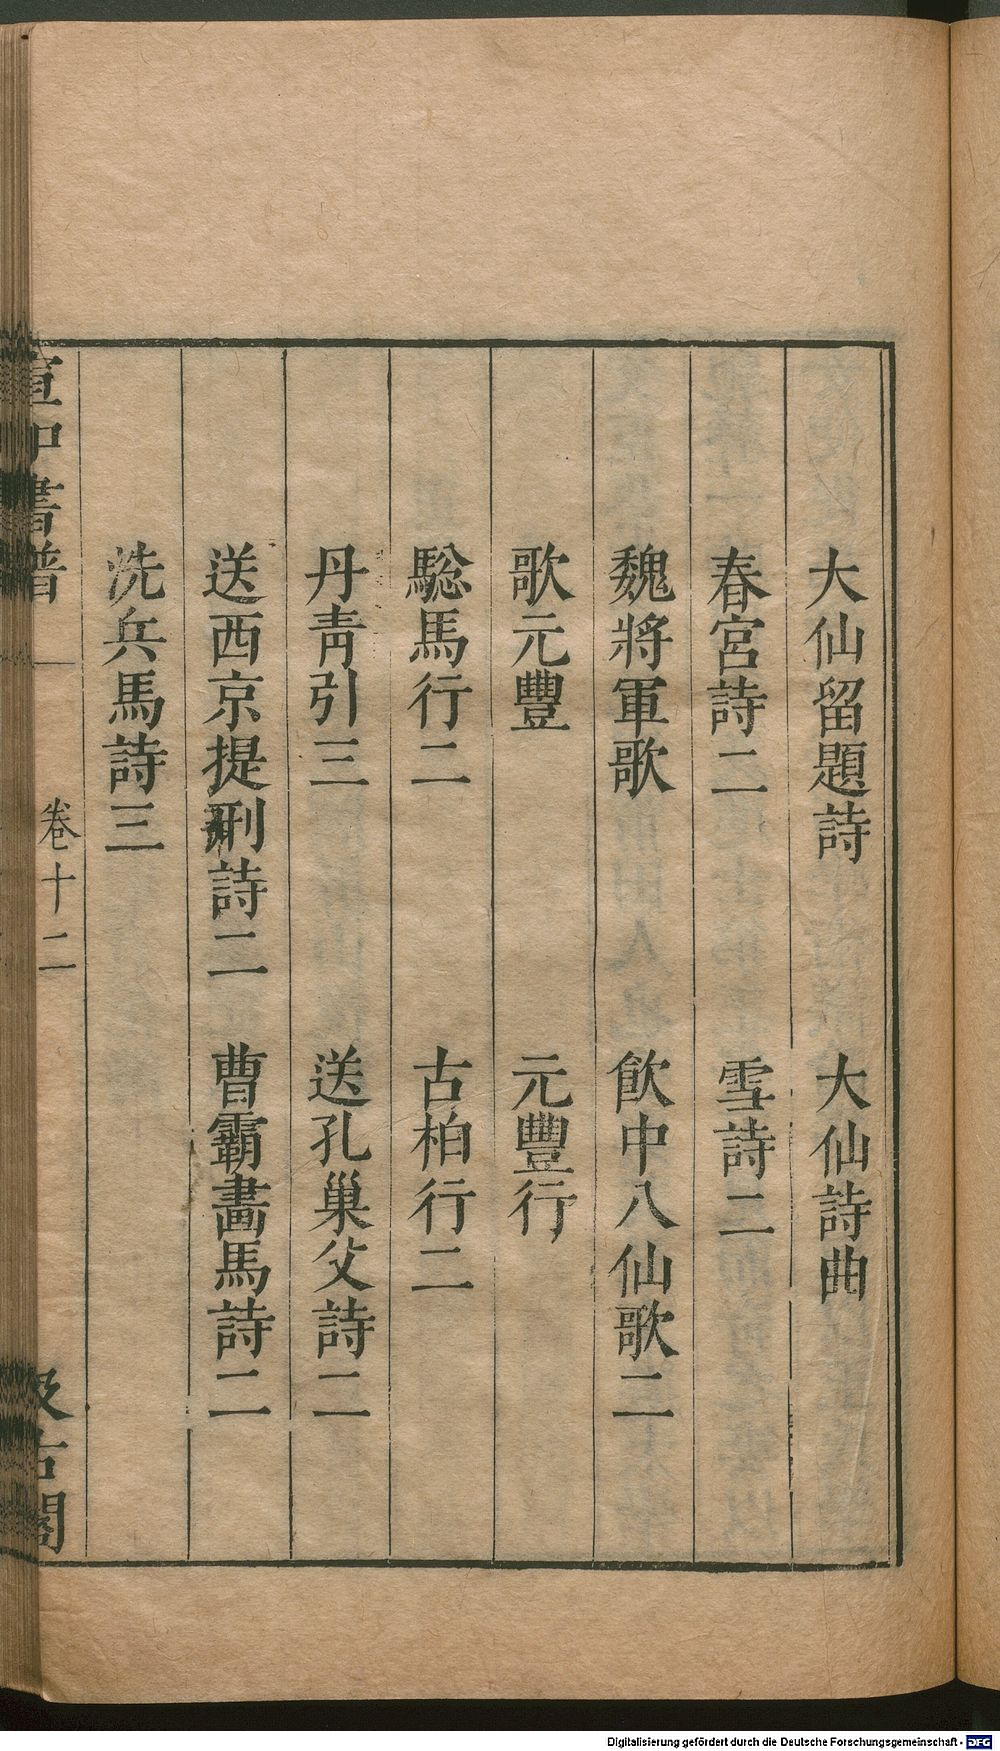 大仙留題詩　大仙詩曲
春宮詩二　雪詩二
魏將軍歌　飲中八仙歌二
歌元豐　元豐行
驄馬行二　古柏行二
丹青引三　送孔巢父詩二
送西京提刑詩二　曹霸畫馬詩二
洗兵馬詩三
宣和書譜　卷十二　汲古閣
Digitalisierung gefördert durch die Deutsche Forschungsgemeinschaft - DFG